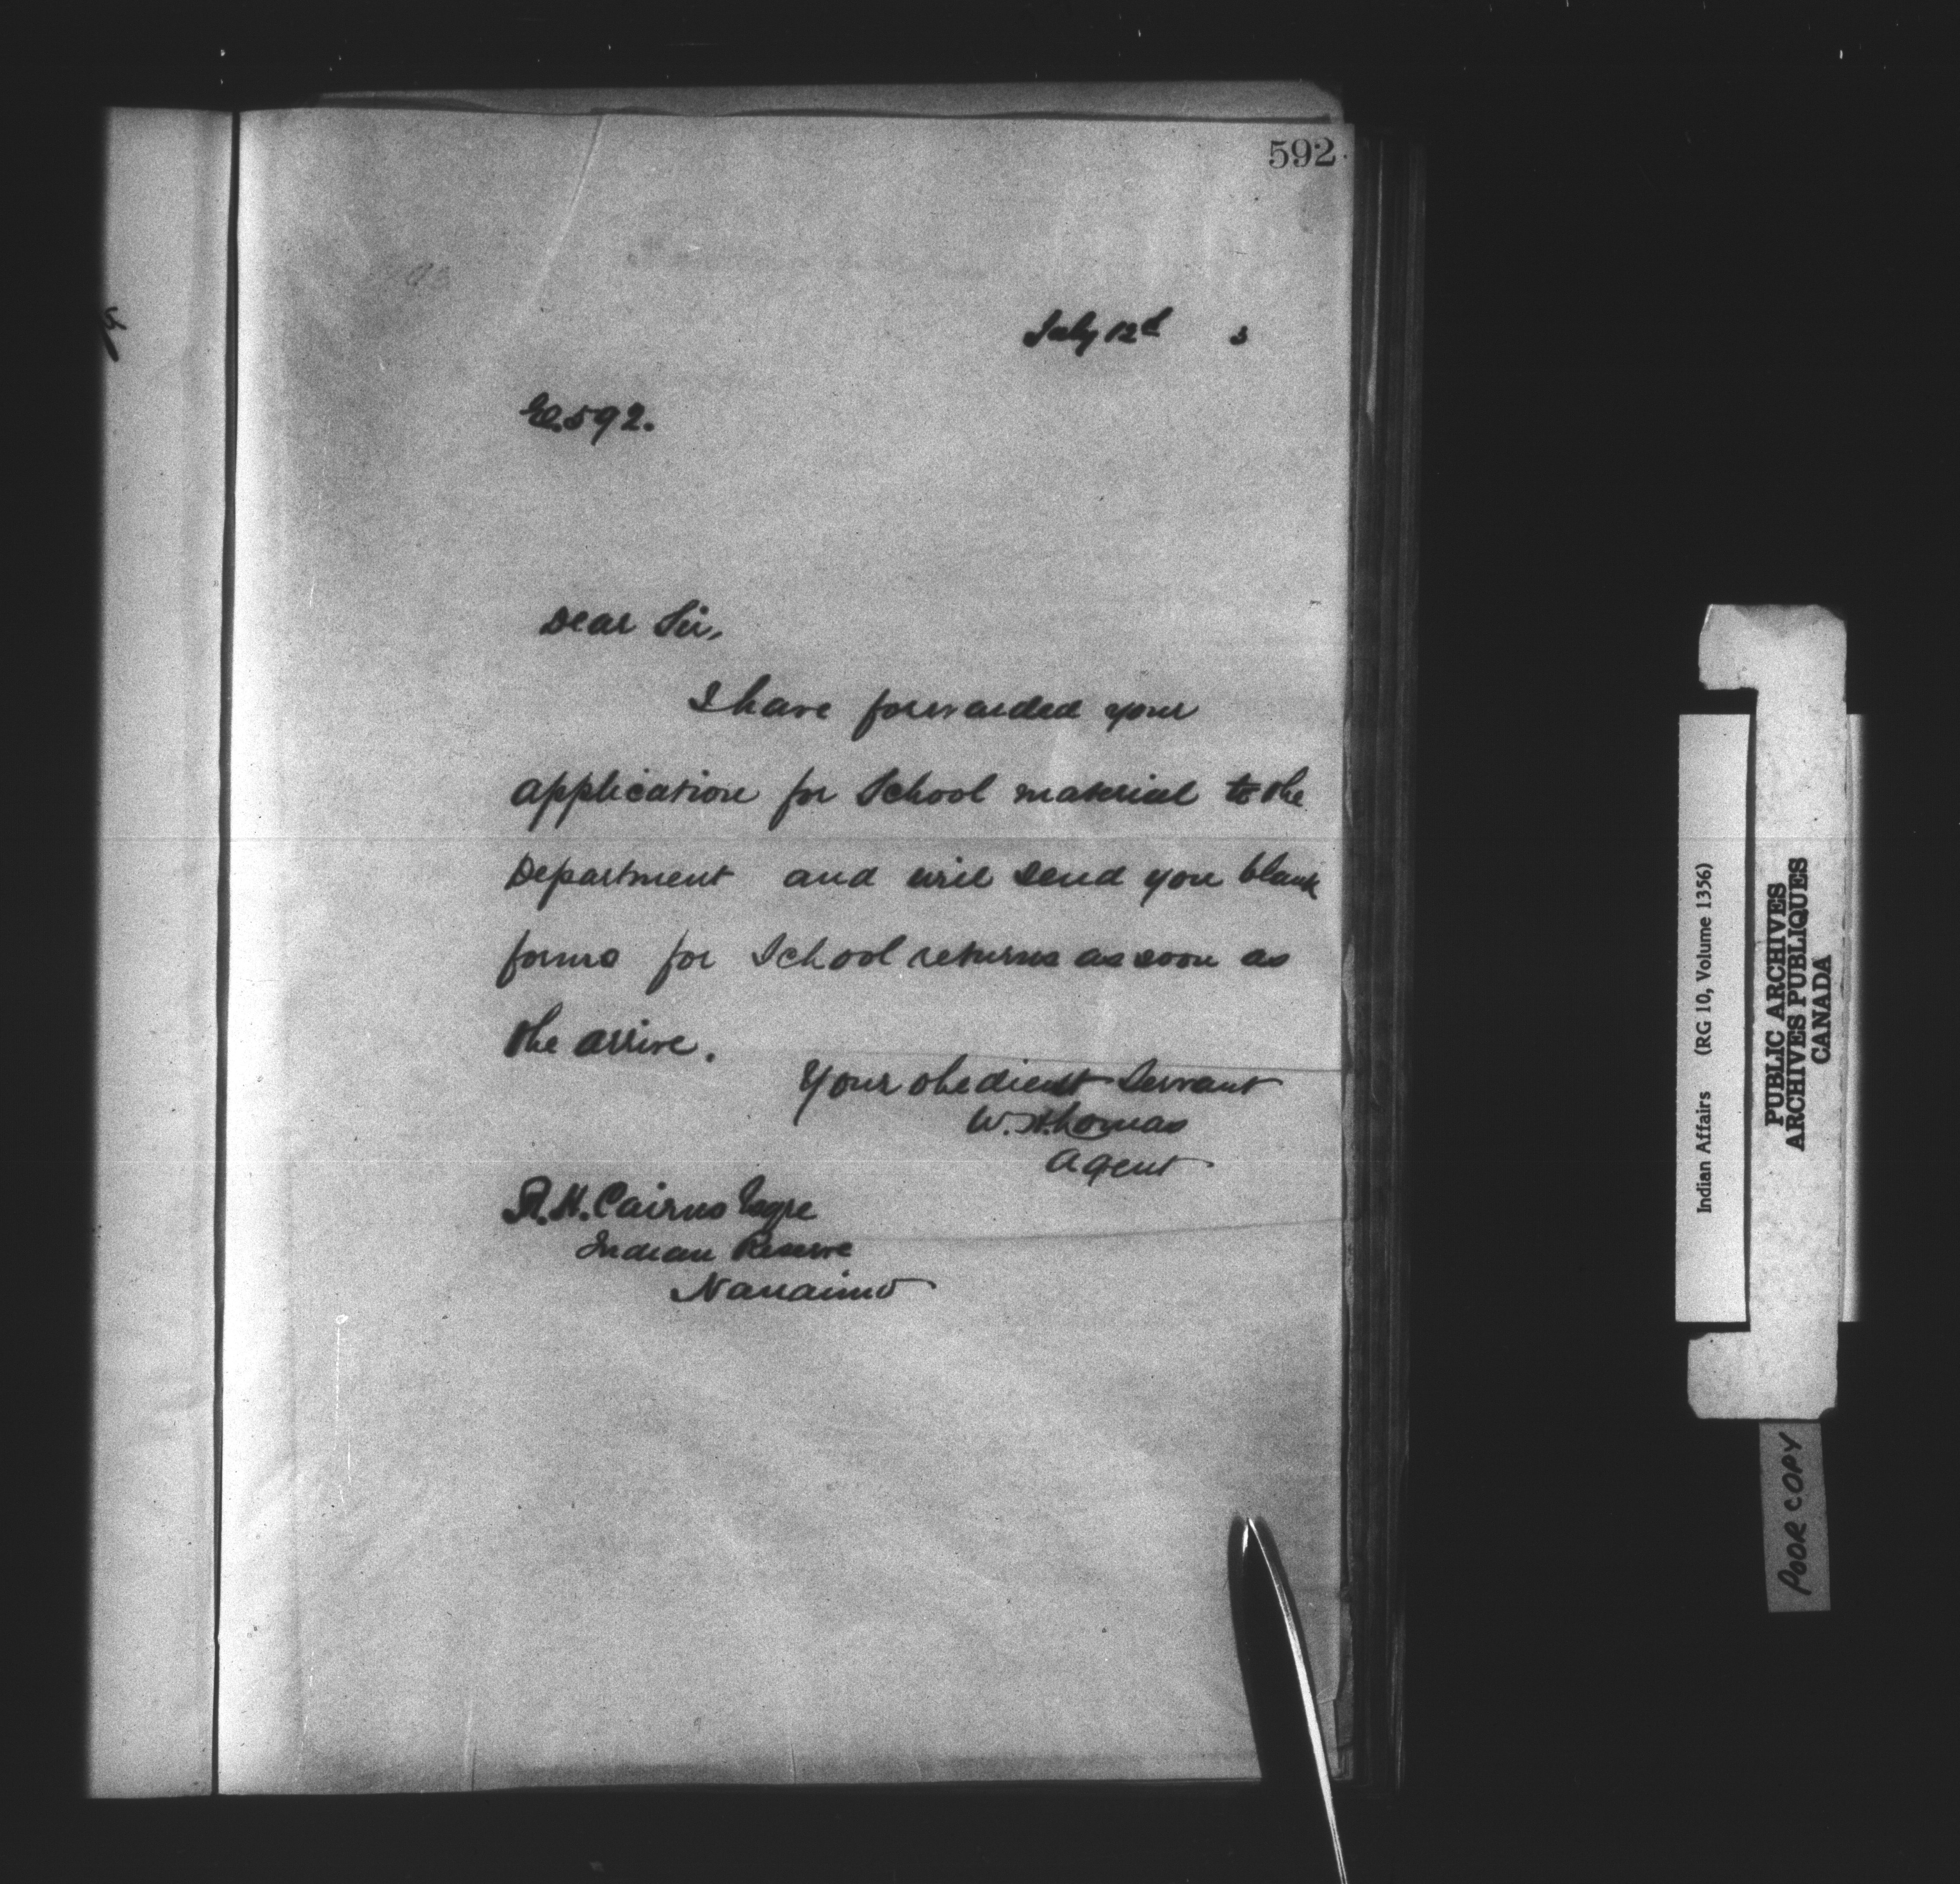 592
July 12th 3
E.592.
Dear Sir,
I have forwarded your
application for School material to the
Department and will send you blank
forms for School returns as soon as
the arrive.
Your obedient Servant
W.H.Lomas
Agent
R.H. Cairns Esqre
Indian Reserve
Nanaimo
Indian Affairs (RG 10, Volume 1356)
PUBLIC ARCHIVES
ARCHIVES PUBLIQUES
CANADA
POOR COPY